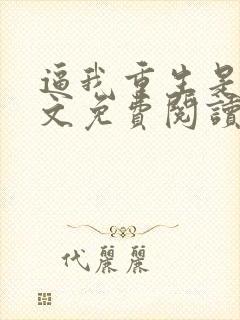 逼我重生是
文免費閱讀
代麗麗